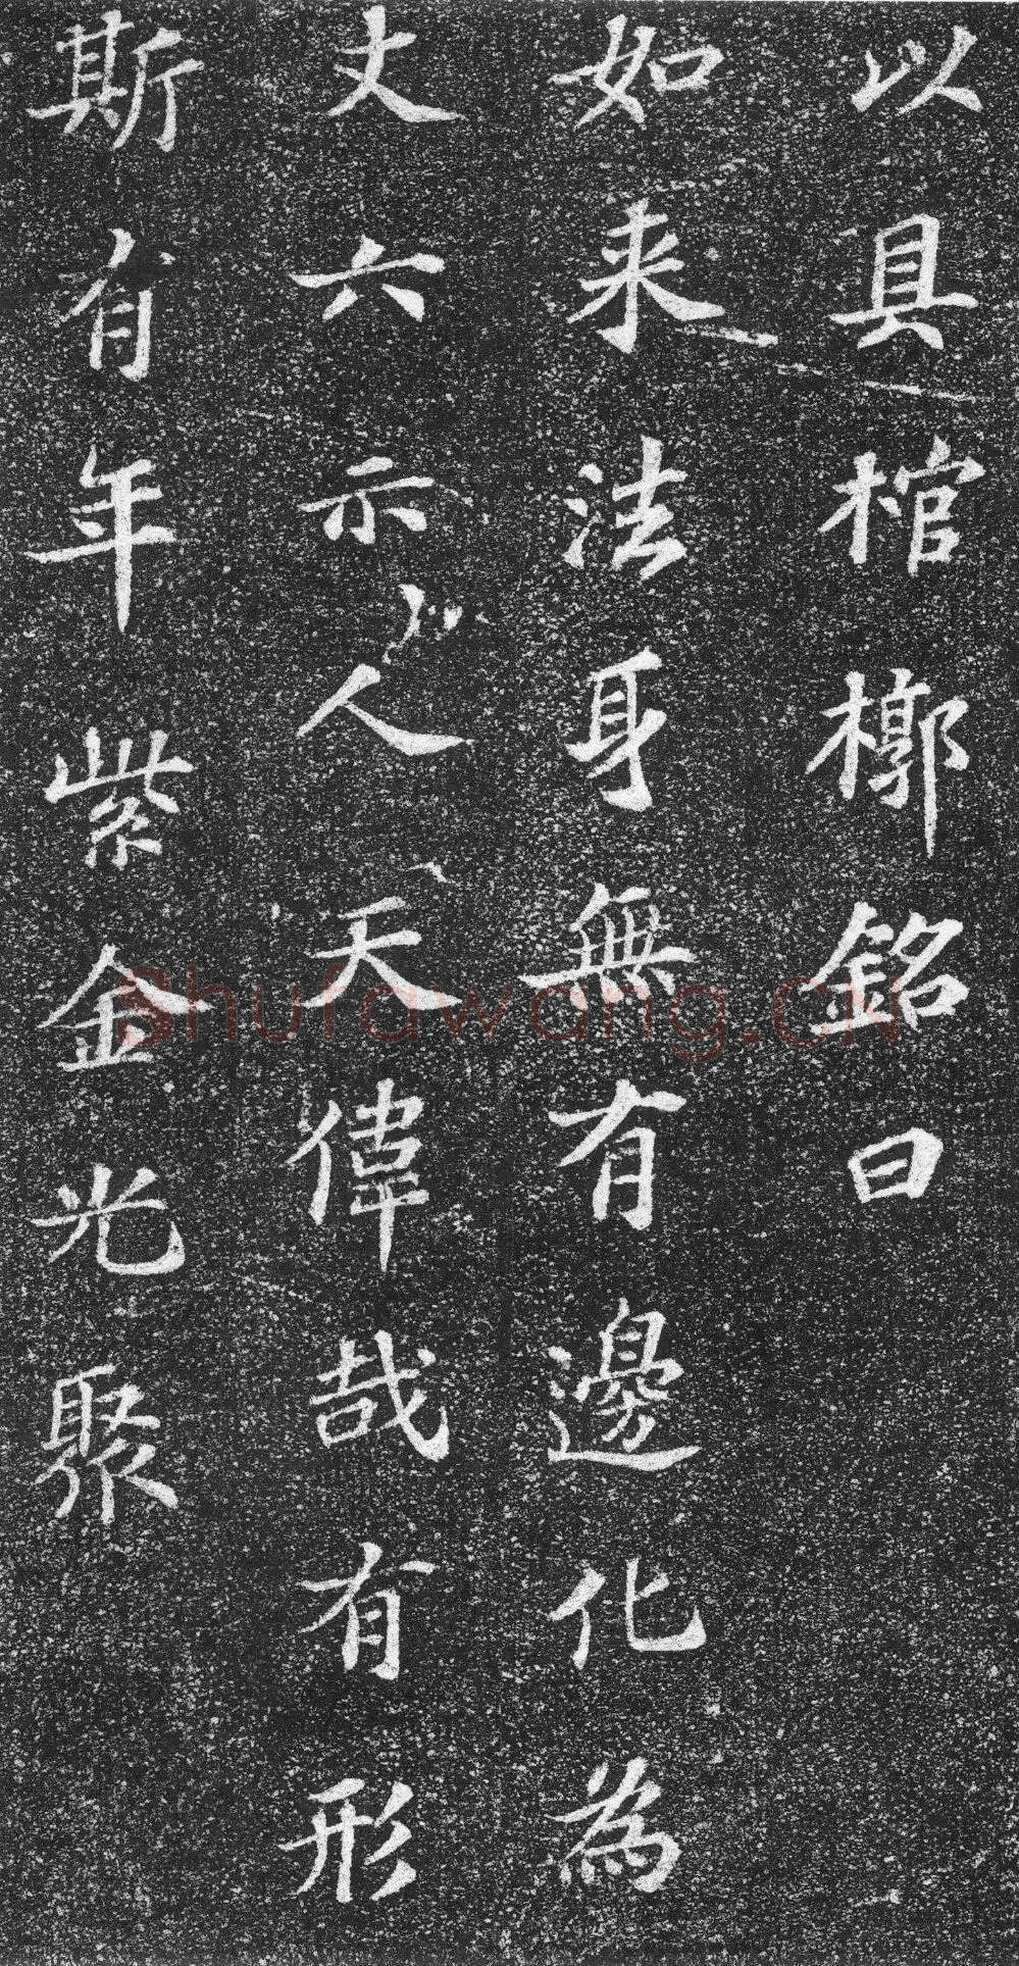 以具棺槨銘曰
如来法身無有邊化為
丈六示人天偉哉有形
斯有年紫金光聚
Shufawang.CN